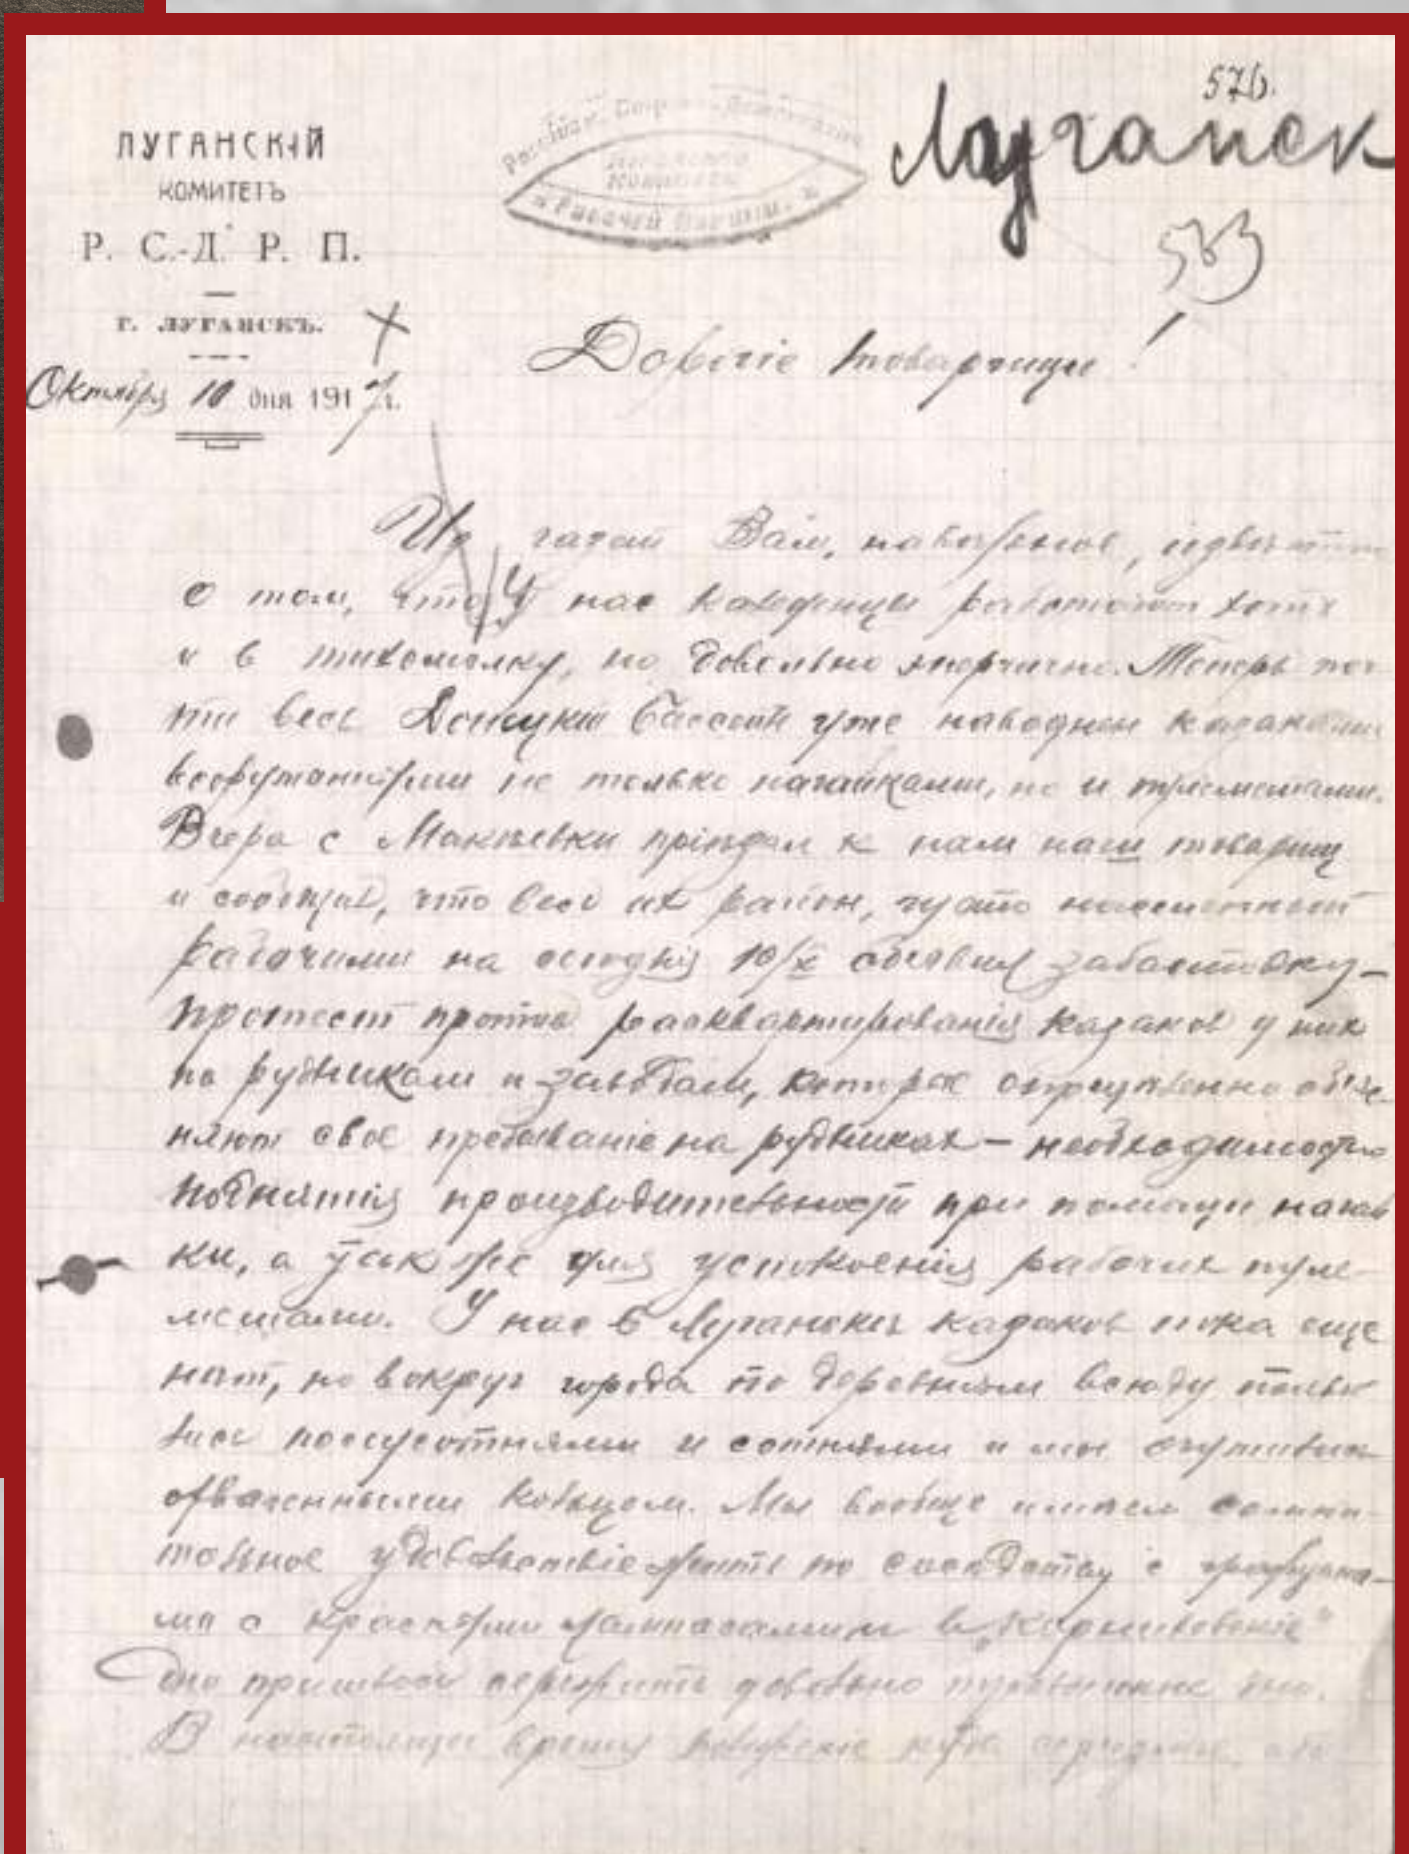 576.
Луганск
ЛУГАНСКІЙ
КОМИТЕТЪ
Р. С.-Д. Р. П.
г. ЛУГАНСКЪ.
Октября 10 дня 1917 г.
Россійск. Соц.-Демократич.
Луганскій
Комитетъ
Рабочей Партіи.
563
Дорогіе товарищи!
Из газет Вам, наверное, известно
о том, что у нас каледенцы работают хотя
и в тихомолку, но довольно энергично. Теперь поч-
ти весь Донецкий бассейн уже наводнен казаками
вооруженными не только нагайками, но и пулеметами.
Вчера с Макеевки пріездал к нам наш товарищ
и сообщил, что весь их район, густо населенный
рабочими на сегодня 10/X объявил забастовку–
протест против расквартированія казаков у них
по рудникам и заводам, которые откровенно объяс-
няют свое пребываніе на рудниках – необходимостью
поднятія производительности при помощи нагай-
ки, а так же для успокоенія рабочих пуле-
метами. У нас в Луганске казаков пока еще
нет, но вокруг города по деревням всюду
полусотнями и сотнями и мы очутились
охваченными кольцом. Мы вообще имеем сомни-
тельное удовольствіе жить по соседству с
ми с красными лампасами и в „Корниловские"
дни пришлось пережить довольно тревожные дни.
В настоящее время